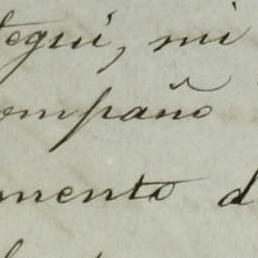 tegui, mi
ompaño
mento d